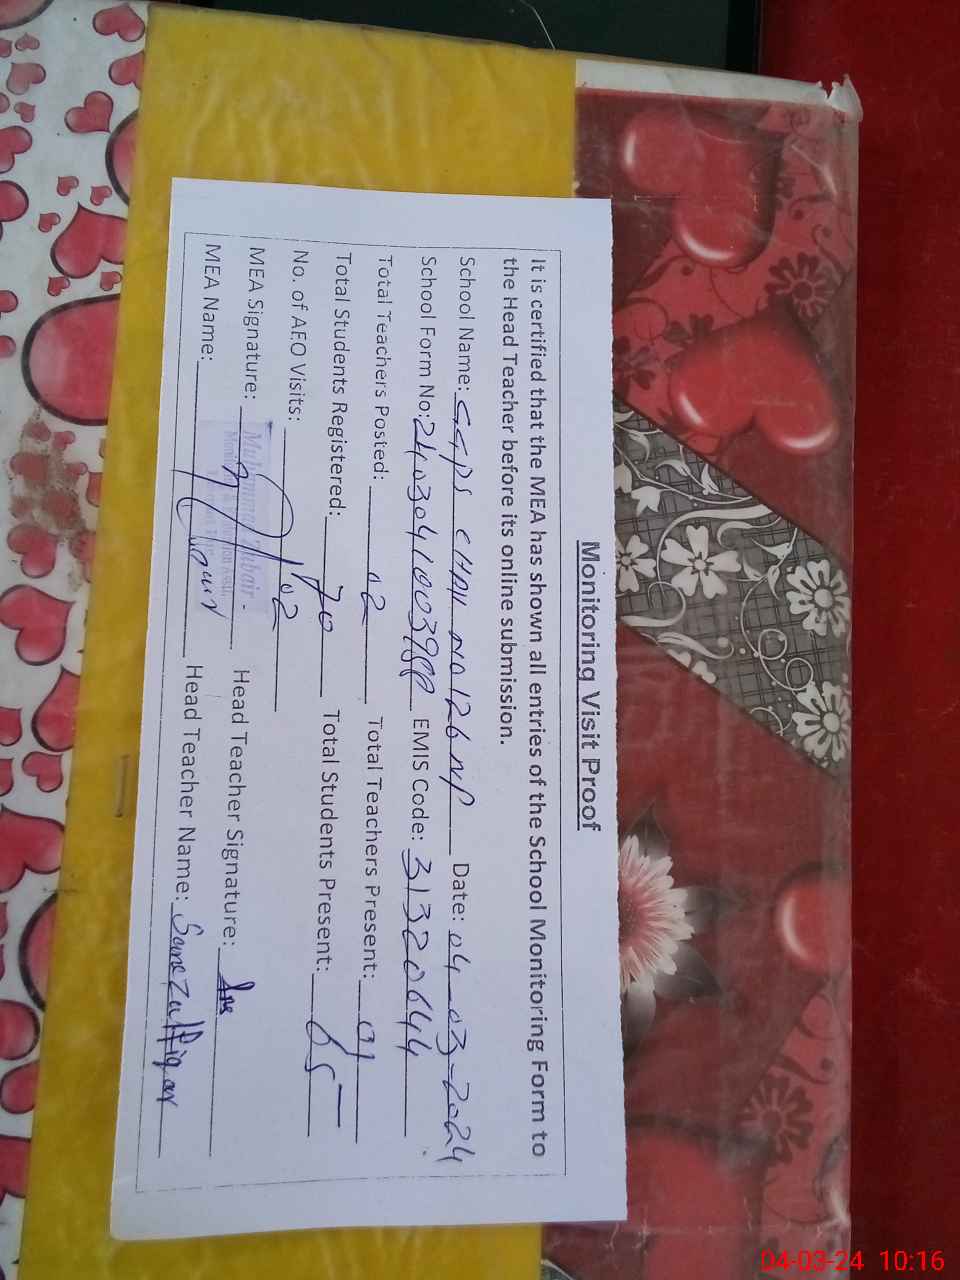 Monitoring Visit Proof
It is certified that the MEA has shown all entries of the School Monitoring Form to
the Head Teacher before its online submission.
School Name: GGPS CHAK NO 126 NP Date: 04-03-2024
School Form No: EMIS Code: 31320644
Total Teachers Posted: 02 Total Teachers Present: 01
Total Students Registered: 70 Total Students Present: 65
No. of AEO Visits: 02
MEA Signature: Head Teacher Signature:
MEA Name: Head Teacher Name:
Muhammad Zubair
04-03-24 10:16